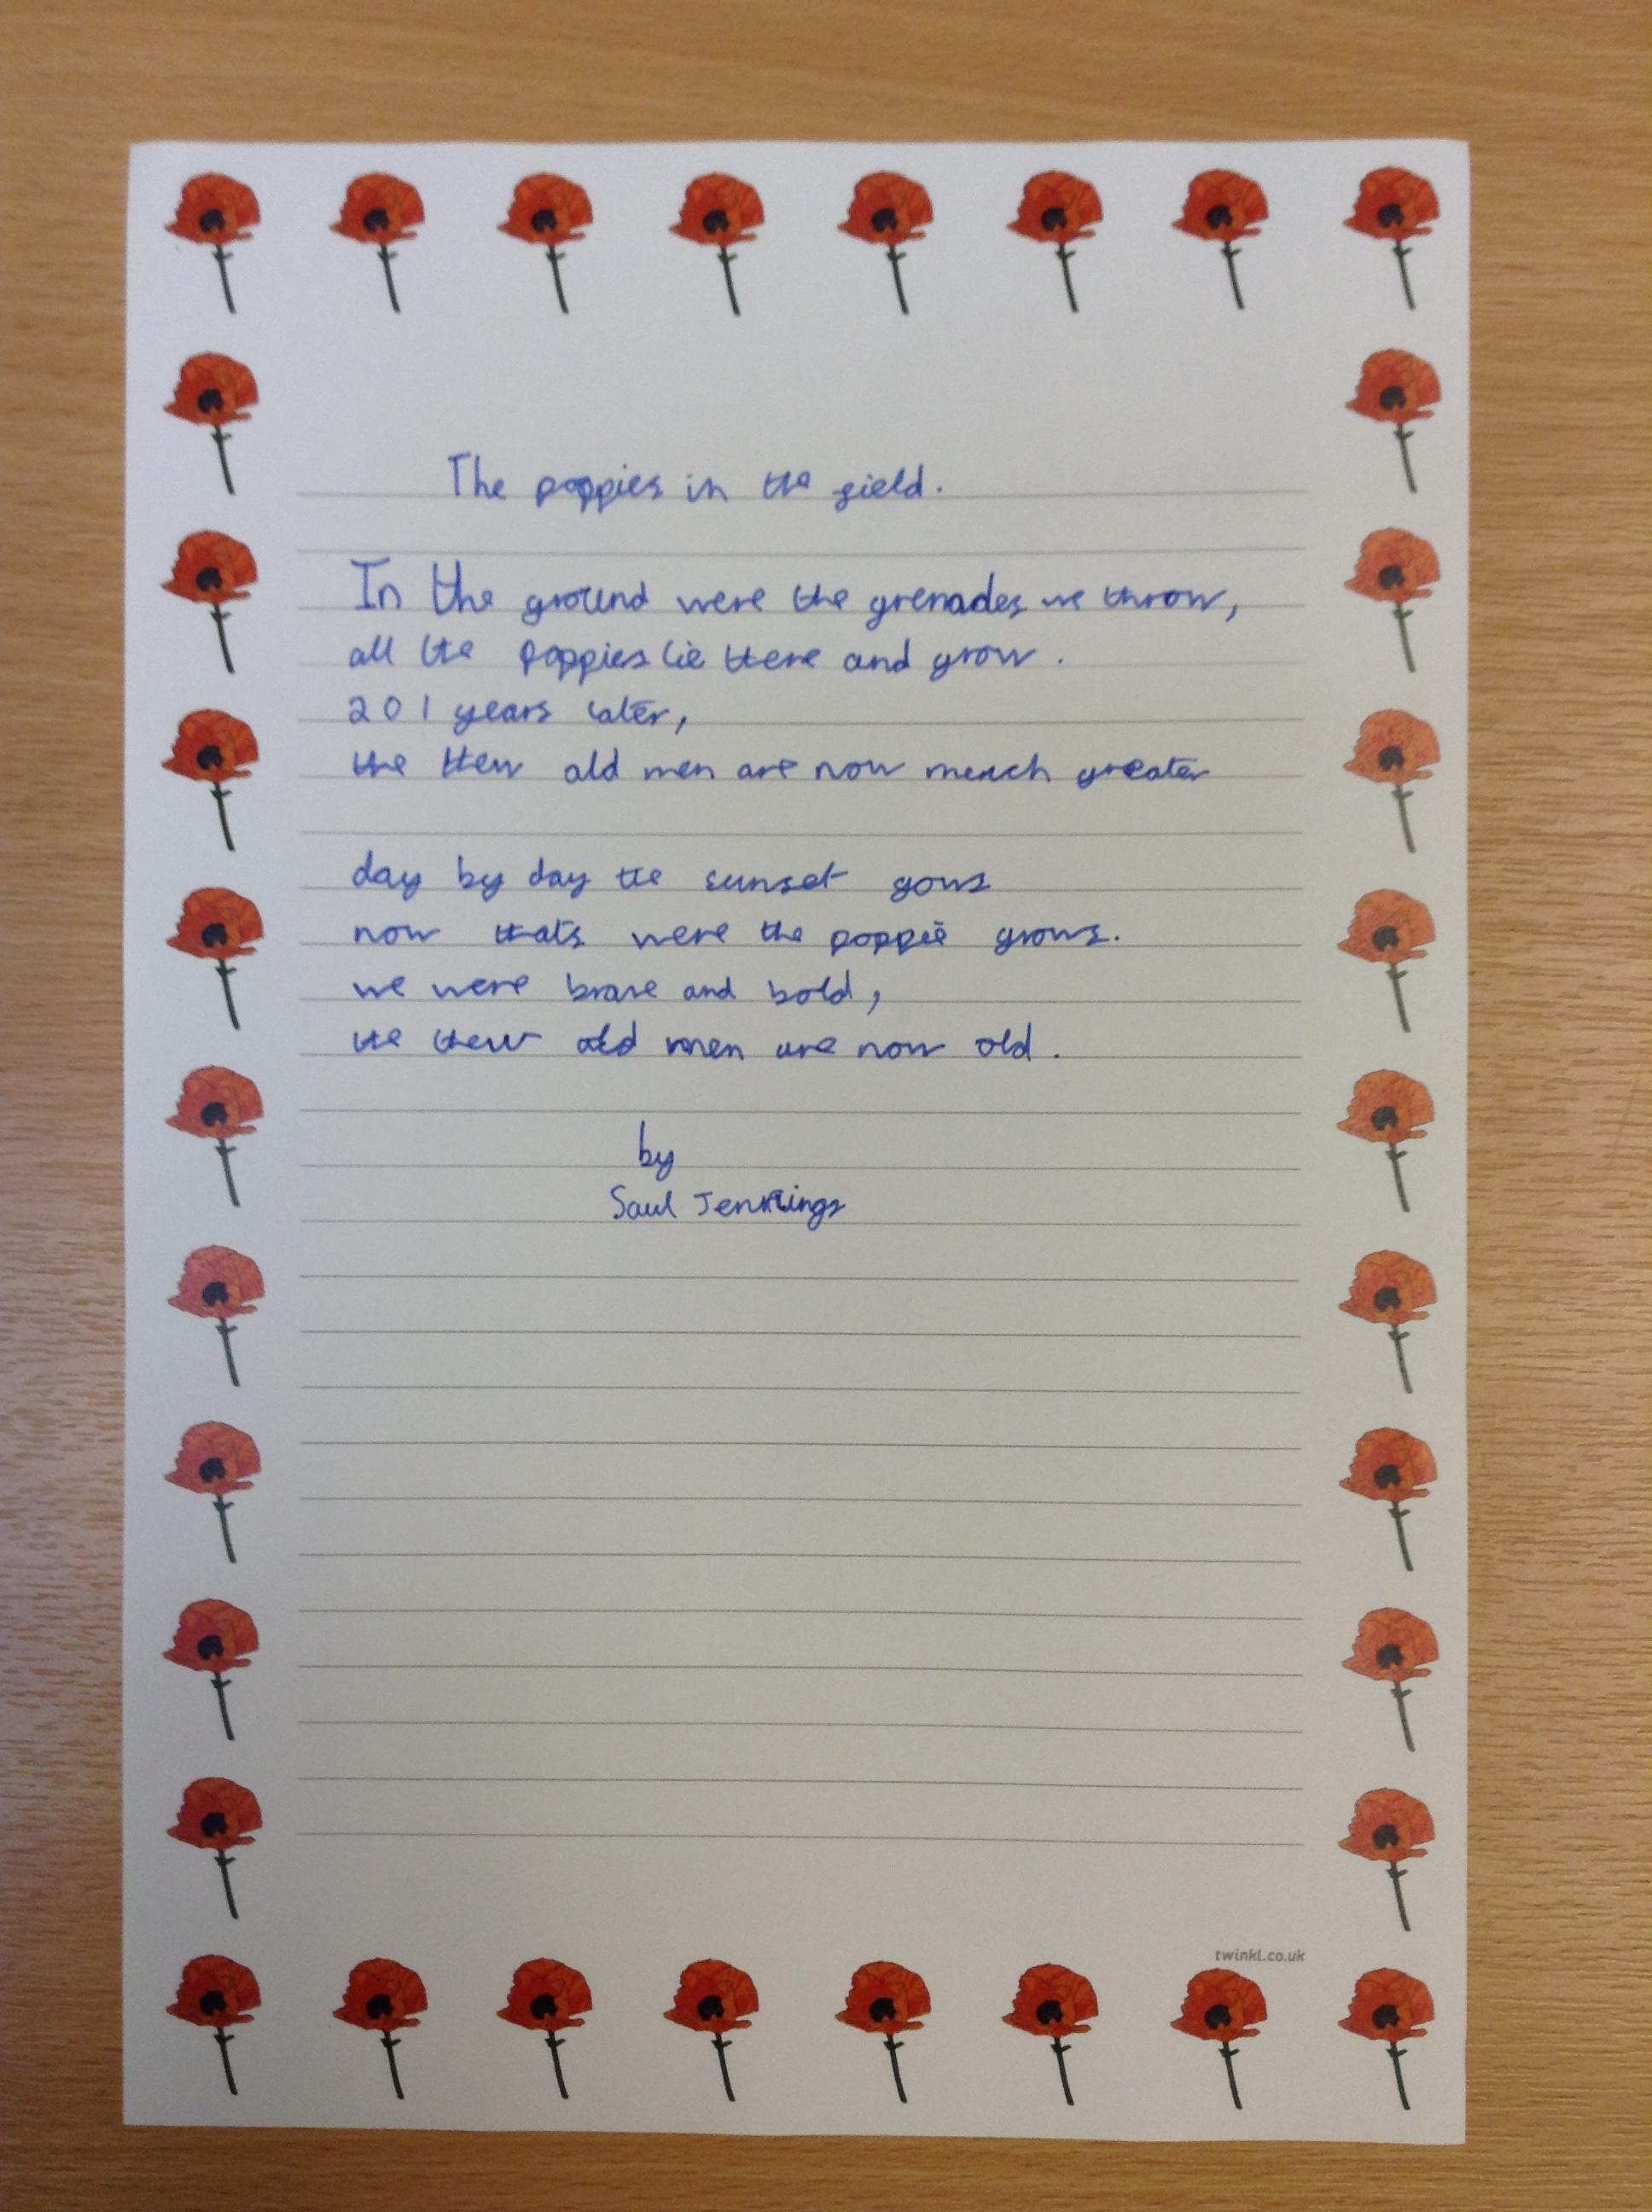 The poppies in the field.
In the ground were the grenades we throw,
all the poppies lie there and grow.
201 years later,
the thew old men are now much greater
day by day the sunset gows
now thats were the poppie grows.
we were brave and bold,
the thew old men are now old.
by
Saul Jennings
twinkl.co.uk